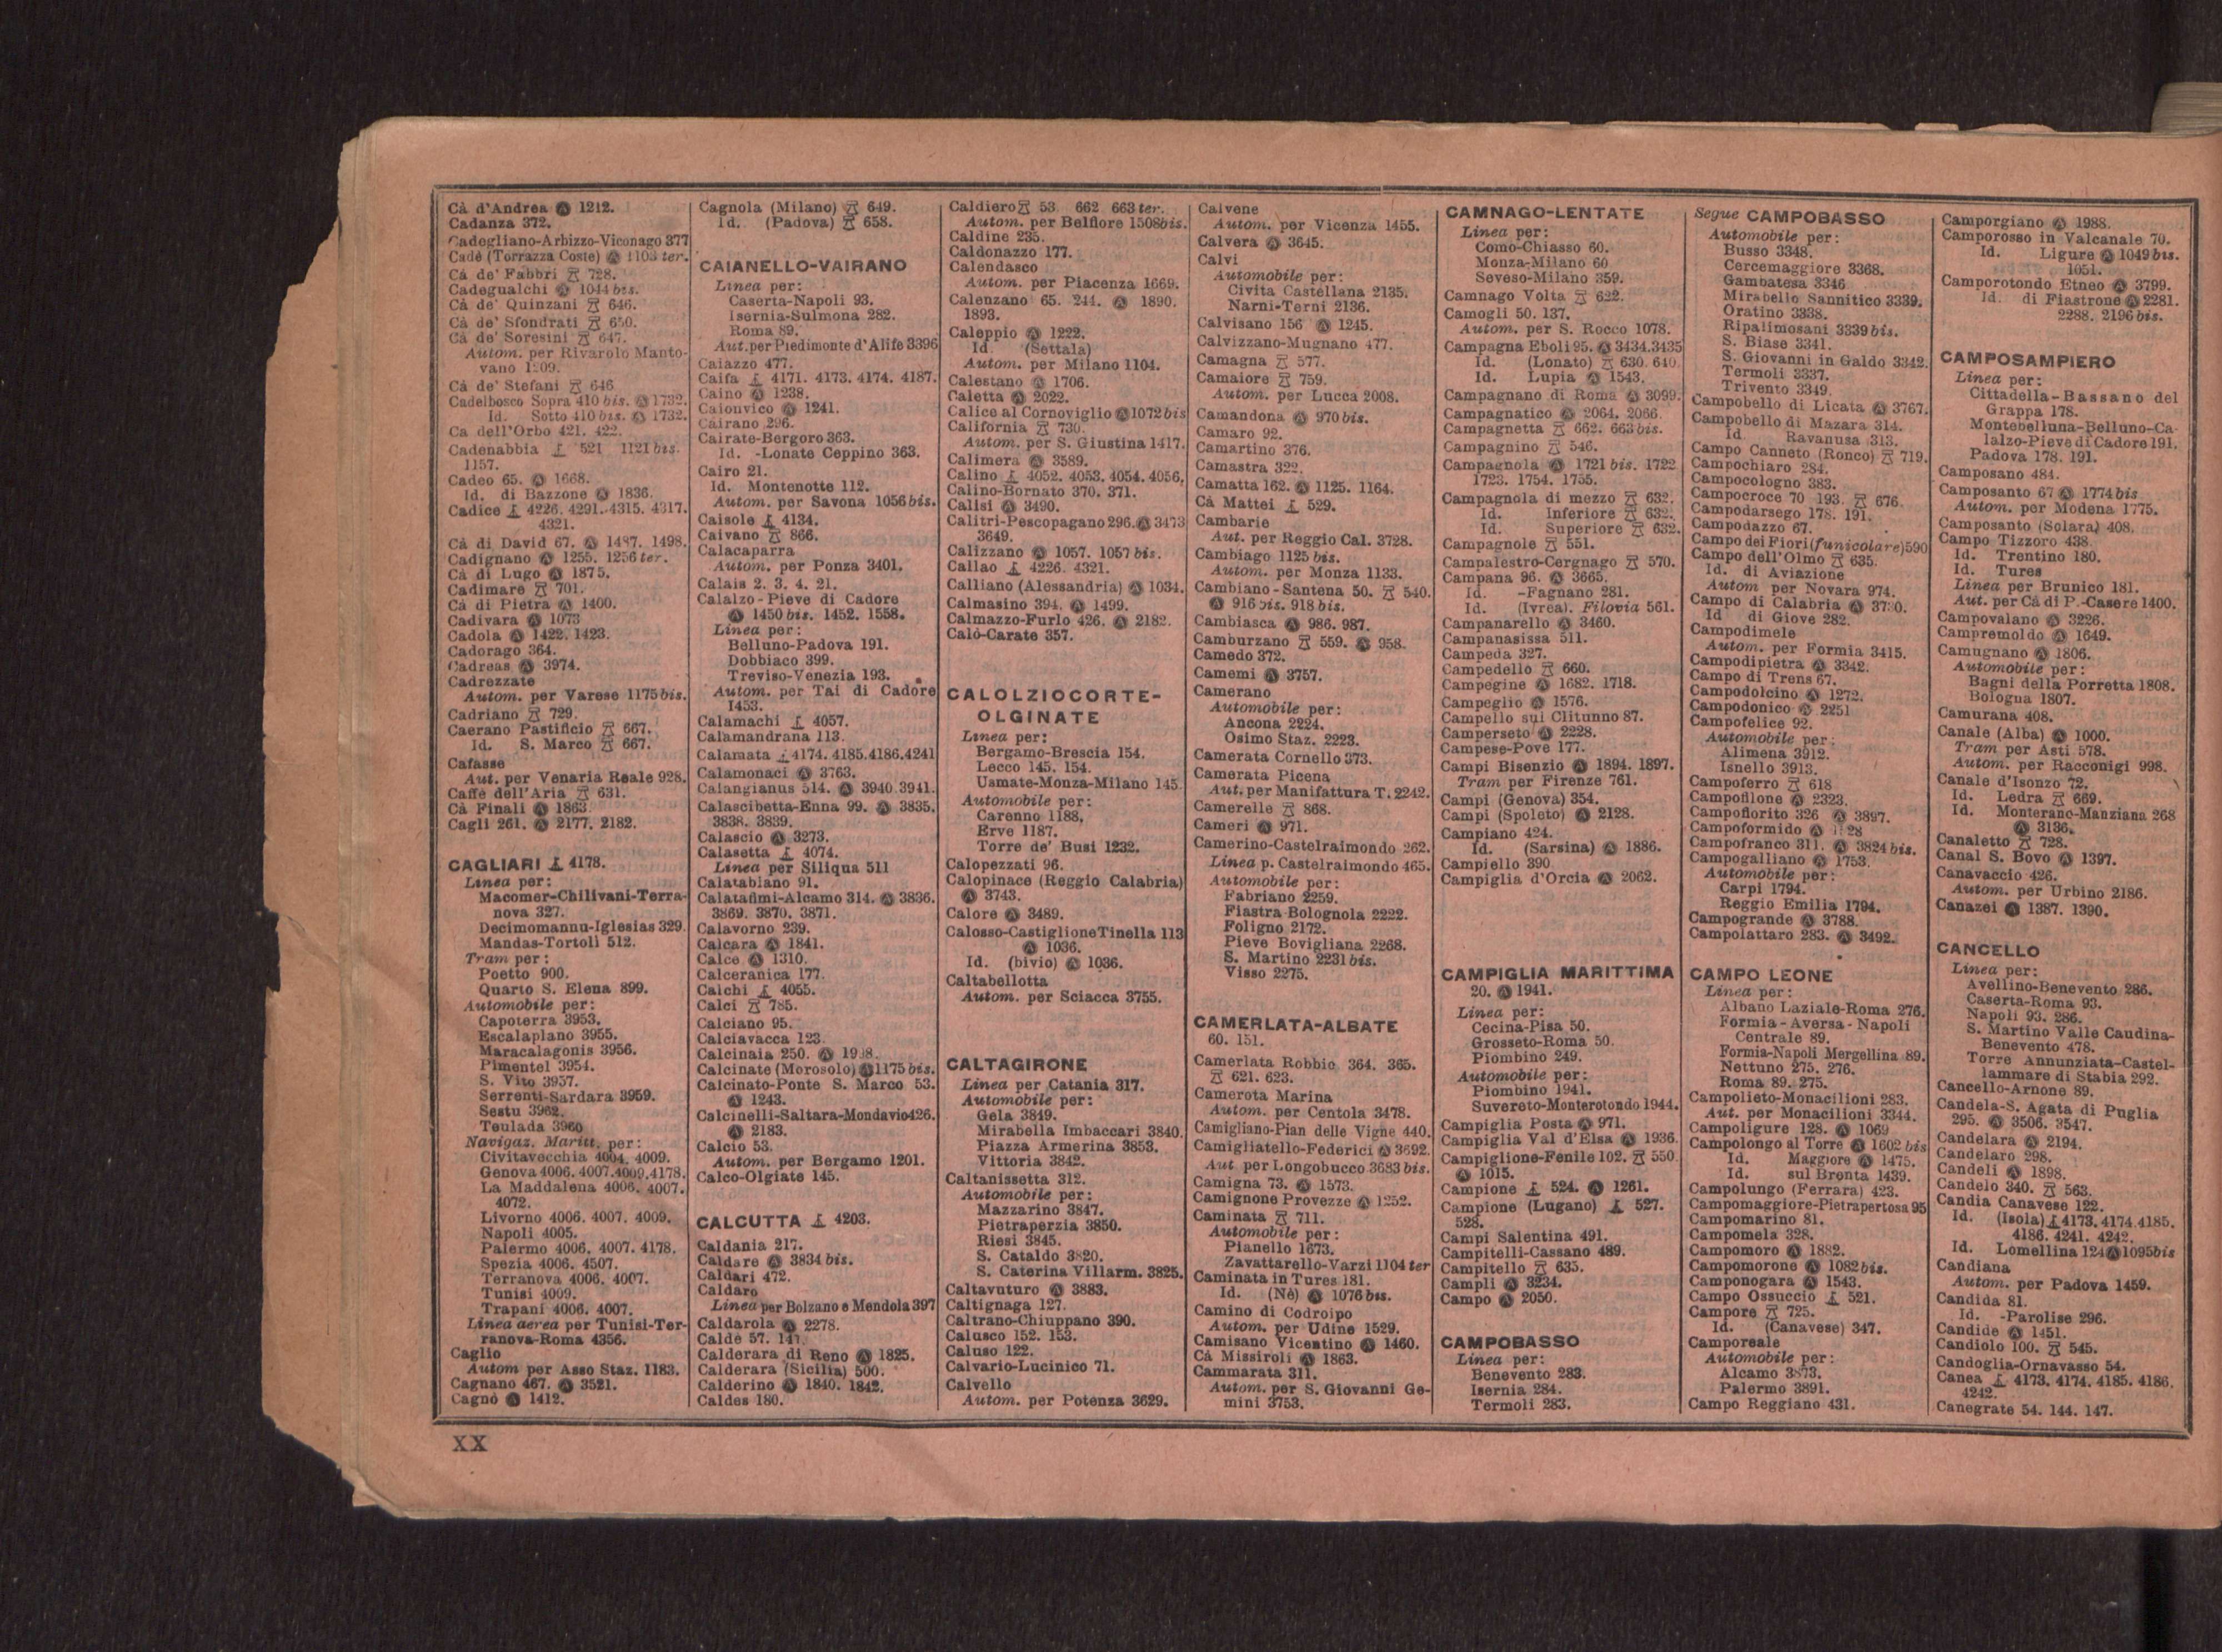 Cà d'Andrea Ⓐ 1212.
Cadanza 372.
Cadegliano-Arbizzo-Viconago 377
Cadè (Torrazza Coste) Ⓐ 1103 ter.
Cà de' Fabbri 728.
Cadegualchi Ⓐ 1044 bis.
Cà de' Quinzani 646.
Cà de' Sfondrati 650.
Cà de' Soresini 647.
Autom. per Rivarolo Manto-
vano 1209.
Cà de' Stefani 646
Cadelbosco Sopra 410 bis. Ⓐ 1732.
Id. Sotto 410 bis. Ⓐ 1732.
Ca dell'Orbo 421. 422.
Cadenabbia 521 1121 bis.
1157.
Cadeo 65. Ⓐ 1668.
Id. di Bazzone Ⓐ 1836.
Cadice 4226. 4291. 4315. 4317.
4321.
Cà di David 67. Ⓐ 1497. 1498.
Cadignano Ⓐ 1255. 1256 ter.
Cà di Lugo Ⓐ 1875.
Cadimare 701.
Cà di Pietra Ⓐ 1400.
Cadivara Ⓐ 1073
Cadola Ⓐ 1422. 1423.
Cadorago 364.
Cadreas Ⓐ 3974.
Cadrezzate
Autom. per Varese 1175 bis.
Cadriano 729.
Caerano Pastificio 667.
Id. S. Marco 667.
Cafasse
Aut. per Venaria Reale 928.
Caffè dell'Aria 631.
Cà Finali Ⓐ 1863.
Cagli 261. Ⓐ 2177. 2182.
CAGLIARI 4178.
Linea per:
Macomer-Chilivani-Terra-
nova 327.
Decimomannu-Iglesias 329.
Mandas-Tortolì 512.
Tram per:
Poetto 900.
Quarto S. Elena 899.
Automobile per:
Capoterra 3953.
Escalaplano 3955.
Maracalagonis 3956.
Pimentel 3954.
S. Vito 3957.
Serrenti-Sardara 3959.
Sestu 3962.
Teulada 3960
Navigaz. Maritt. per:
Civitavecchia 4004. 4009.
Genova 4006. 4007. 4009. 4178.
La Maddalena 4006. 4007.
4072.
Livorno 4006. 4007. 4009.
Napoli 4005.
Palermo 4006. 4007. 4178.
Spezia 4006. 4507.
Terranova 4006. 4007.
Tunisi 4009.
Trapani 4006. 4007.
Linea aerea per Tunisi-Ter-
ranova-Roma 4356.
Caglio
Autom per Asso Staz. 1183.
Cagnano 467. Ⓐ 3521.
Cagnò Ⓐ 1412.
Cagnola (Milano) 649.
Id. (Padova) 658.
CAIANELLO-VAIRANO
Linea per:
Caserta-Napoli 93.
Isernia-Sulmona 282.
Roma 89.
Aut. per Piedimonte d'Alife 3396
Caiazzo 477.
Caifa 4171. 4173. 4174. 4187.
Caino Ⓐ 1238.
Caionvico Ⓐ 1241.
Cairano 296.
Cairate-Bergoro 363.
Id. -Lonate Ceppino 363.
Cairo 21.
Id. Montenotte 112.
Autom. per Savona 1056 bis.
Caisole 4134.
Caivano 866.
Calacaparra
Autom. per Ponza 3401.
Calais 2. 3. 4. 21.
Calalzo-Pieve di Cadore
Ⓐ 1450 bis. 1452. 1558.
Linea per:
Belluno-Padova 191.
Dobbiaco 399.
Treviso-Venezia 193.
Autom. per Tai di Cadore
1453.
Calamachi 4057.
Calamandrana 113.
Calamata 4174. 4185. 4186. 4241
Calamonaci Ⓐ 3763.
Calangianus 514. Ⓐ 3940. 3941.
Calascibetta-Enna 99. Ⓐ 3835.
3838. 3839.
Calascio Ⓐ 3273.
Calasetta 4074.
Linea per Siliqua 511
Calatabiano 91.
Calatafimi-Alcamo 314. Ⓐ 3836.
3869. 3870. 3871.
Calavorno 239.
Calcara Ⓐ 1841.
Calce Ⓐ 1310.
Calceranica 177.
Calchi 4055.
Calci 785.
Calciano 95.
Calciavacca 123.
Calcinaia 250. Ⓐ
Calcinate (Morosolo) Ⓐ 1175 bis.
Calcinato-Ponte S. Marco 53.
Ⓐ 1243.
Calcinelli-Saltara-Mondavio 426.
Ⓐ 2183.
Calcio 53.
Autom. per Bergamo 1201.
Calco-Olgiate 145.
CALCUTTA 4203.
Caldania 217.
Caldare Ⓐ 3834 bis.
Caldari 472.
Caldaro
Linea per Bolzano e Mendola 397
Caldarola Ⓐ 2278.
Caldè 57.
Calderara di Reno Ⓐ 1825.
Calderara (Sicilia) 500.
Calderino Ⓐ 1840. 1842.
Caldes 180.
Caldiero 53 662 663 ter.
Autom. per Belfiore 1508 bis.
Caldine 235.
Caldonazzo 177.
Calendasco
Autom. per Piacenza 1669.
Calenzano 65. 244. Ⓐ 1890.
1893.
Caleppio Ⓐ 1222.
Id. (Settala)
Autom. per Milano 1104.
Calestano Ⓐ 1706.
Caletta Ⓐ 2022.
Calice al Cornoviglio Ⓐ 1072 bis
California 730.
Autom. per S. Giustina 1417.
Calimera Ⓐ 3589.
Calino 4052. 4053. 4054. 4056.
Calino-Bornato 370. 371.
Calisi Ⓐ 3490.
Calitri-Pescopagano 296. Ⓐ 3473
3649.
Calizzano Ⓐ 1057. 1057 bis.
Callao 4226. 4321.
Calliano (Alessandria) Ⓐ 1034.
Calmasino 394. Ⓐ 1499.
Calmazzo-Furlo 426. Ⓐ 2182.
Calò-Carate 357.
CALOLZIOCORTE-
OLGINATE
Linea per:
Bergamo-Brescia 154.
Lecco 145. 154.
Usmate-Monza-Milano 145.
Automobile per:
Carenno 1188.
Erve 1187.
Torre de' Busi 1232.
Calopezzati 96.
Calopinace (Reggio Calabria)
Ⓐ 3743.
Calore Ⓐ 3489.
Calosso-Castiglione Tinella 113
Ⓐ 1036.
Id. (bivio) Ⓐ 1036.
Caltabellotta
Autom. per Sciacca 3755.
CALTAGIRONE
Linea per Catania 317.
Automobile per:
Gela 3849.
Mirabella Imbaccari 3840.
Piazza Armerina 3853.
Vittoria 3842.
Caltanissetta 312.
Automobile per:
Mazzarino 3847.
Pietraperzia 3850.
Riesi 3845.
S. Cataldo 3820.
S. Caterina Villarm. 3825.
Caltavuturo Ⓐ 3883.
Caltignaga 127.
Caltrano-Chiuppano 390.
Calusco 152. 153.
Caluso 122.
Calvario-Lucinico 71.
Calvello
Autom. per Potenza 3629.
Calvene
Autom. per Vicenza 1455.
Calvera Ⓐ 3645.
Calvi
Automobile per:
Civita Castellana 2135.
Narni-Terni 2136.
Calvisano 156 Ⓐ 1245.
Calvizzano-Mugnano 477.
Camagna 577.
Camaiore 759.
Autom. per Lucca 2008.
Camandona Ⓐ 970 bis.
Camaro 92.
Camartino 376.
Camastra 322.
Camatta 162. Ⓐ 1125. 1164.
Cà Mattei 529.
Cambarie
Aut. per Reggio Cal. 3728.
Cambiago 1125 bis.
Autom. per Monza 1133.
Cambiano-Santena 50. 540.
Ⓐ 916 bis. 918 bis.
Cambiasca Ⓐ 986. 987.
Camburzano 559. Ⓐ 958.
Camedo 372.
Camemi Ⓐ 3757.
Camerano
Automobile per:
Ancona 2224.
Osimo Staz. 2223.
Camerata Cornello 373.
Camerata Picena
Aut. per Manifattura T. 2242.
Camerelle 868.
Cameri Ⓐ 971.
Camerino-Castelraimondo 262.
Linea p. Castelraimondo 465.
Automobile per:
Fabriano 2259.
Fiastra-Bolognola 2222.
Foligno 2172.
Pieve Bovigliana 2268.
S. Martino 2231 bis.
Visso 2275.
CAMERLATA-ALBATE
60. 151.
Camerlata Robbio 364. 365.
621. 623.
Camerota Marina
Autom. per Centola 3478.
Camigliano-Pian delle Vigne 440.
Camigliatello-Federici Ⓐ 3692.
Aut per Longobucco 3683 bis.
Camigna 73. Ⓐ 1573.
Camignone Provezze Ⓐ 1252.
Caminata 711.
Automobile per:
Pianello 1673.
Zavattarello-Varzi 1104 ter
Caminata in Tures 181.
Id. (Nè) Ⓐ 1076 bis.
Camino di Codroipo
Autom. per Udine 1529.
Camisano Vicentino Ⓐ 1460.
Cà Missiroli Ⓐ 1863.
Cammarata 311.
Autom. per S. Giovanni Ge-
mini 3753.
CAMNAGO-LENTATE
Linea per:
Como-Chiasso 60.
Monza-Milano 60
Seveso-Milano 359.
Camnago Volta 622.
Camogli 50. 137.
Autom. per S. Rocco 1078.
Campagna Eboli 95. Ⓐ 3434. 3435
Id. (Lonato) 630. 640.
Id. Lupia Ⓐ 1543.
Campagnano di Roma Ⓐ 3099.
Campagnatico Ⓐ 2064. 2066.
Campagnetta 662. 663 bis.
Campagnino 546.
Campagnola Ⓐ 1721 bis. 1722.
1723. 1754. 1755.
Campagnola di mezzo 632.
Id. Inferiore 632.
Id. Superiore 632.
Campagnole 551.
Campalestro-Cergnago 570.
Campana 96. Ⓐ 3665.
Id. -Fagnano 281.
Id. (Ivrea). Filovia 561.
Campanarello Ⓐ 3460.
Campanasissa 511.
Campeda 327.
Campedello 660.
Campegine Ⓐ 1682. 1718.
Campeglio Ⓐ 1576.
Campello sul Clitunno 87.
Camperseto Ⓐ 2228.
Campese-Pove 177.
Campi Bisenzio Ⓐ 1894. 1897.
Tram per Firenze 761.
Campi (Genova) 354.
Campi (Spoleto) Ⓐ 2128.
Campiano 424.
Id. (Sarsina) Ⓐ 1886.
Campiello 390.
Campiglia d'Orcia Ⓐ 2062.
CAMPIGLIA MARITTIMA
20. Ⓐ 1941.
Linea per:
Cecina-Pisa 50.
Grosseto-Roma 50.
Piombino 249.
Automobile per:
Piombino 1941.
Suvereto-Monterotondo 1944.
Campiglia Posta Ⓐ 971.
Campiglia Val d'Elsa Ⓐ 1936.
Campiglione-Fenile 102. 550.
Ⓐ 1015.
Campione 524. Ⓐ 1261.
Campione (Lugano) 527.
528.
Campi Salentina 491.
Campitelli-Cassano 489.
Campitello 635.
Campli Ⓐ 3234.
Campo Ⓐ 2050.
CAMPOBASSO
Linea per:
Benevento 283.
Isernia 284.
Termoli 283.
Segue CAMPOBASSO
Automobile per:
Busso 3348.
Cercemaggiore 3368.
Gambatesa 3346
Mirabello Sannitico 3339.
Oratino 3338.
Ripalimosani 3339 bis.
S. Biase 3341.
S. Giovanni in Galdo 3342.
Termoli 3337.
Trivento 3349.
Campobello di Licata Ⓐ 3767.
Campobello di Mazara 314.
Id. Ravanusa 313.
Campo Canneto (Ronco) 719.
Campochiaro 284.
Campocologno 383.
Campocroce 70 193. 676.
Campodarsego 178. 191.
Campodazzo 67.
Campo dei Fiori (funicolare) 590
Campo dell'Olmo 635.
Id. di Aviazione
Autom per Novara 974.
Campo di Calabria Ⓐ
Id di Giove 282.
Campodimele
Autom. per Formia 3415.
Campodipietra Ⓐ 3342.
Campo di Trens 67.
Campodolcino Ⓐ 1272.
Campodonico Ⓐ 2251
Campofelice 92.
Automobile per:
Alimena 3912.
Isnello 3913.
Campoferro 618
Campofilone Ⓐ 2323.
Campofiorito 326 Ⓐ 3897.
Campoformido Ⓐ
Campofranco 311. Ⓐ 3824 bis.
Campogalliano Ⓐ 1753.
Automobile per:
Carpi 1794.
Reggio Emilia 1794.
Campogrande Ⓐ 3788.
Campolattaro 283. Ⓐ 3492.
CAMPO LEONE
Linea per:
Albano Laziale-Roma 276.
Formia-Aversa-Napoli
Centrale 89.
Formia-Napoli Mergellina 89.
Nettuno 275. 276.
Roma 89. 275.
Campolieto-Monacilioni 283.
Aut. per Monacilioni 3344.
Campoligure 128. Ⓐ 1069
Campolongo al Torre Ⓐ 1602 bis
Id. Maggiore Ⓐ 1475.
Id. sul Brenta 1439.
Campolungo (Ferrara) 423.
Campomaggiore-Pietrapertosa 95
Campomarino 81.
Campomela 328.
Campomoro Ⓐ 1882.
Campomorone Ⓐ 1082 bis.
Camponogara Ⓐ 1543.
Campo Ossuccio 521.
Campore 725.
Id. (Canavese) 347.
Camporeale
Automobile per:
Alcamo 3873.
Palermo 3891.
Campo Reggiano 431.
Camporgiano Ⓐ 1988.
Camporosso in Valcanale 70.
Id. Ligure Ⓐ 1049 bis.
1051.
Camporotondo Etneo Ⓐ 3799.
Id. di Fiastrone Ⓐ 2281.
2288. 2196 bis.
CAMPOSAMPIERO
Linea per:
Cittadella-Bassano del
Grappa 178.
Montebelluna-Belluno-Ca-
lalzo-Pieve di Cadore 191.
Padova 178. 191.
Camposano 484.
Camposanto 67 Ⓐ 1774 bis
Autom. per Modena 1775.
Camposanto (Solara) 408.
Campo Tizzoro 438.
Id. Trentino 180.
Id. Tures
Linea per Brunico 181.
Aut. per Cà di P.-Casere 1400.
Campovalano Ⓐ 3226.
Campremoldo Ⓐ 1649.
Camugnano Ⓐ 1806.
Automobile per:
Bagni della Porretta 1808.
Bologna 1807.
Camurana 408.
Canale (Alba) Ⓐ 1000.
Tram per Asti 578.
Autom. per Racconigi 998.
Canale d'Isonzo 72.
Id. Ledra 669.
Id. Monterano-Manziana 268
Ⓐ 3136.
Canaletto 728.
Canal S. Bovo Ⓐ 1397.
Canavaccio 426.
Autom. per Urbino 2186.
Canazei Ⓐ 1387. 1390.
CANCELLO
Linea per:
Avellino-Benevento 286.
Caserta-Roma 93.
Napoli 93. 286.
S. Martino Valle Caudina-
Benevento 478.
Torre Annunziata-Castel-
lammare di Stabia 292.
Cancello-Arnone 89.
Candela-S. Agata di Puglia
295. Ⓐ 3506. 3547.
Candelara Ⓐ 2194.
Candelaro 298.
Candeli Ⓐ 1898.
Candelo 340. 563.
Candia Canavese 122.
Id. (Isola) 4173. 4174. 4185.
4186. 4241. 4242.
Id. Lomellina 124 Ⓐ 1095 bis
Candiana
Autom. per Padova 1459.
Candida 81.
Id. -Parolise 296.
Candide Ⓐ 1451.
Candiolo 100. 545.
Candoglia-Ornavasso 54.
Canea 4173. 4174. 4185. 4186.
4242.
Canegrate 54. 144. 147.
XX